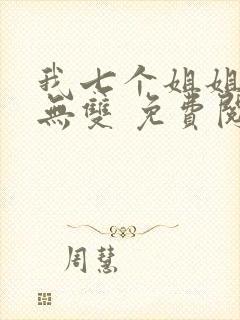 我七个姐姐
無雙 免費閱
周慧